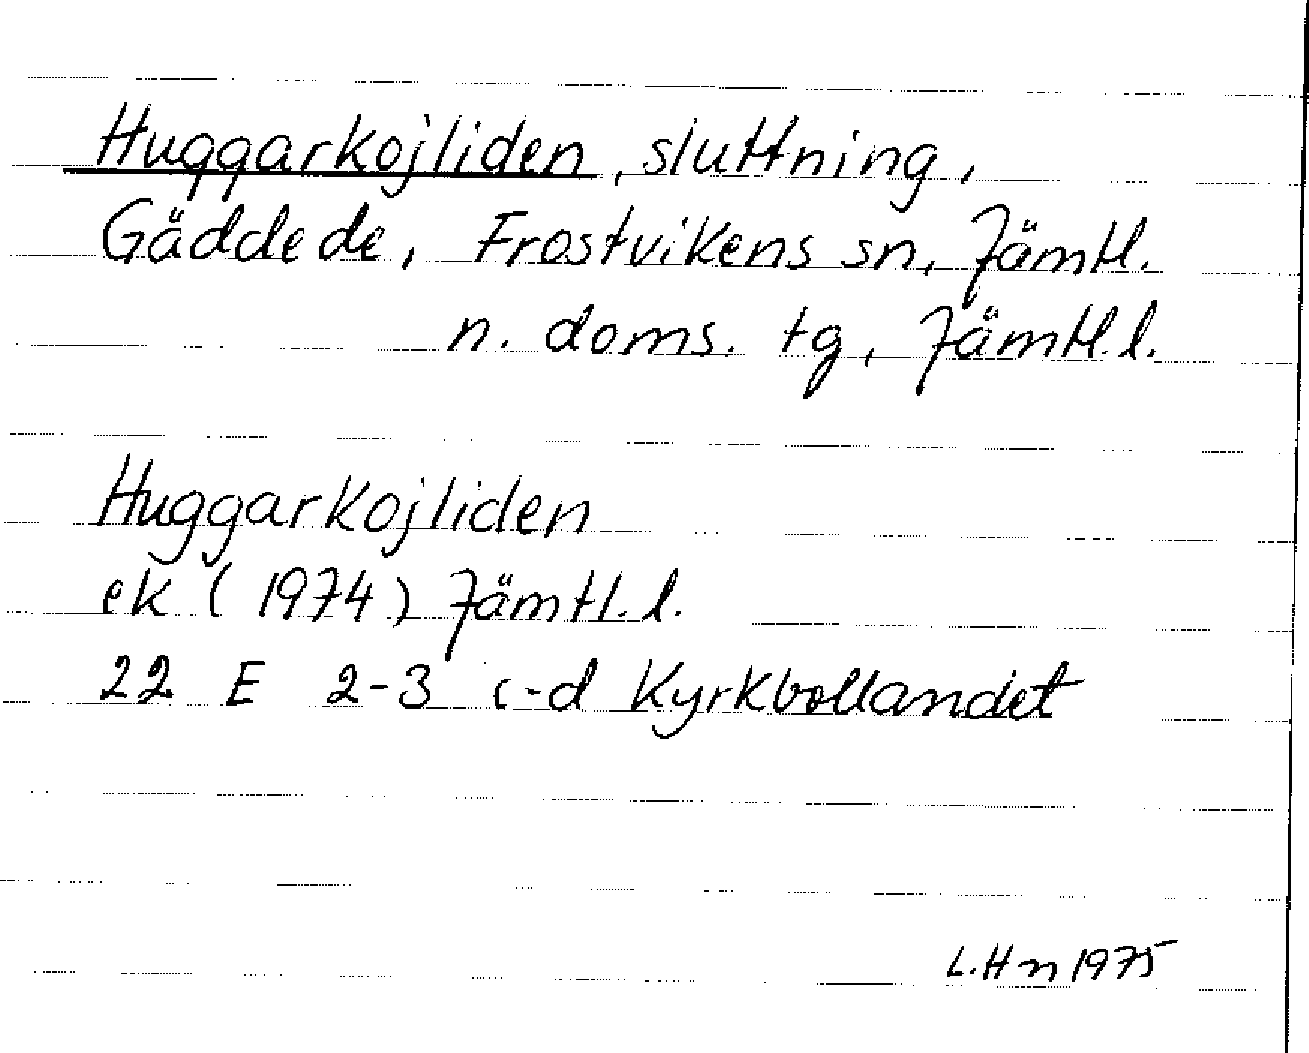 Huggarkojliden, sluttning,
Gäddede, Frostvikens sn, Jämtl.
n. doms. tg, Jämtl.l.
Huggarkojliden
ek (1974) Jämtl.l.
22 E 2-3 c-d Kyrkbollandet
L.Hn 1975